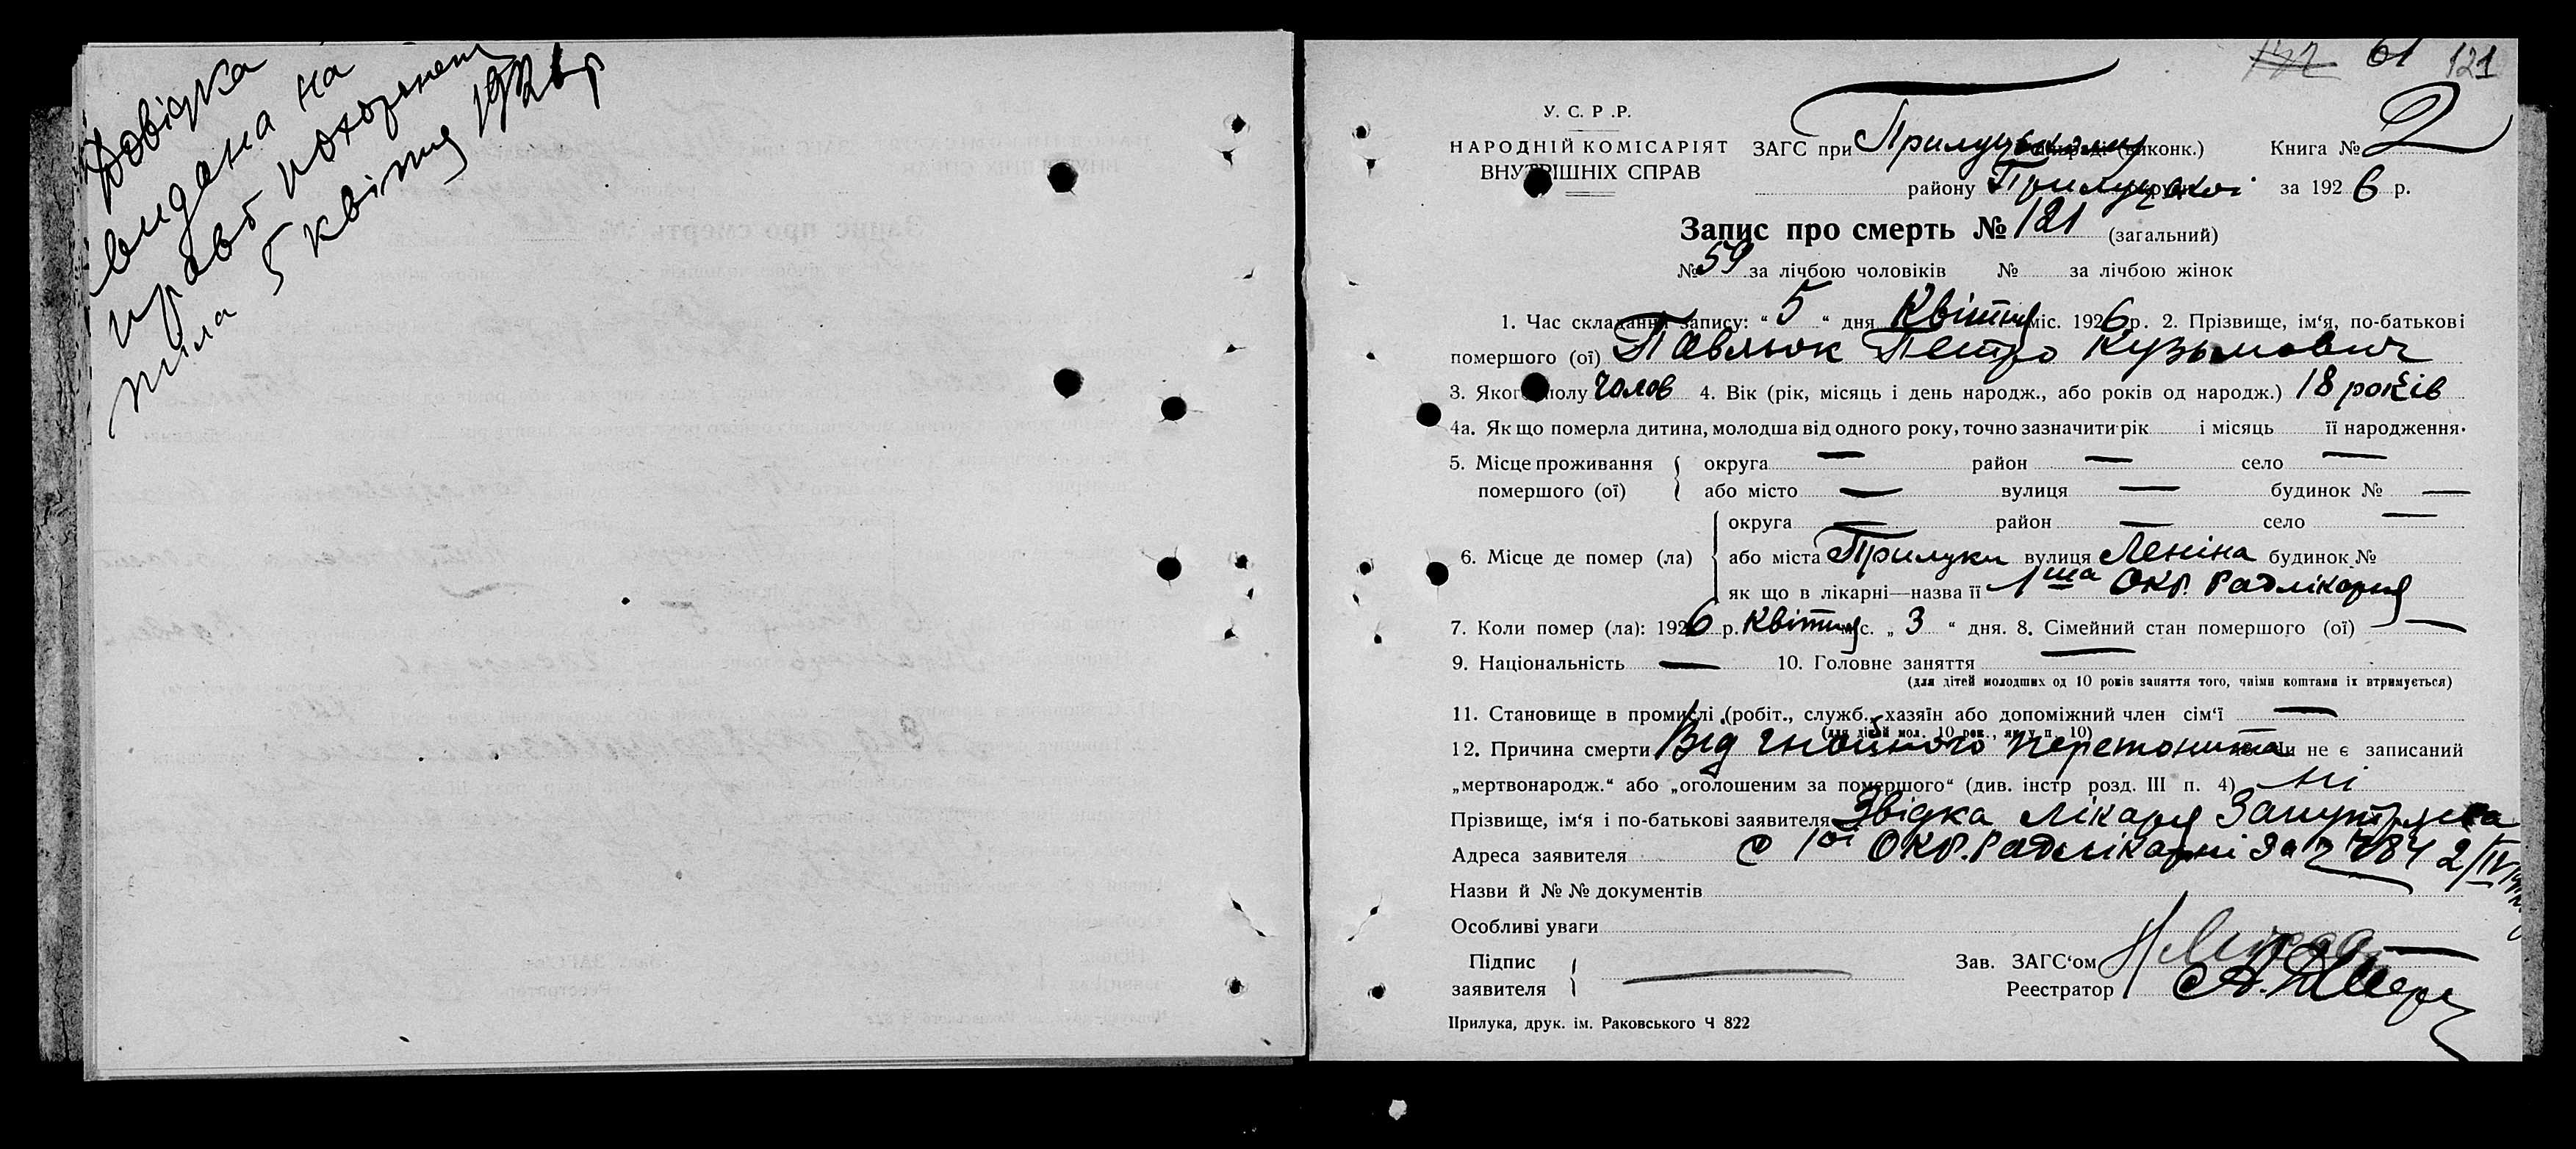 Довідка
видана на
право похоронення
тіла 5 квітня 1926 р
61 121
У. С. Р. Р.
НАРОДНІЙ КОМІСАРІЯТ
ВНУТРІШНІХ СПРАВ
ЗАГС при Прилуцькому (виконк.) Книга № 2
району Прилуцької за 1926 р.
Запис про смерть № 121 (загальний)
№ 59 за лічбою чоловіків № за лічбою жінок
1. Час складання запису: “ 5 “ дня Квітня міс. 1926 р. 2. Прізвище, ім‘я, по-батькові
помершого (ої) Павлюк Петро Кузьмович
3. Якого полу Чолов 4. Вік (рік, місяць і день народж., або років од народж.) 18 років
4а. Як що померла дитина, молодша від одного року, точно зазначити рік і місяць її народження.
5. Місце проживання округа — район — село —
помершого (ої) або місто — вулиця — будинок № —
округа — район — село —
6. Місце де помер (ла) або міста Прилуки вулиця Леніна будинок №
як що в лікарні—назва її 1ша Окр. Радлікарня
7. Коли помер (ла): 1926 р. Квітня міс. „ 3 “ дня. 8. Сімейний стан помершого (ої) —
9. Національність — 10. Головне заняття —
(для дітей молодших од 10 років заняття того, чиїми коштами їх втримується)
11. Становище в промислі (робіт., служб., хазяїн або допоміжний член сім‘ї —
(для дітей мол. 10 рок., як у п. 10)
12. Причина смерти Від гнойного перетонита Чи не є записаний
„мертвонародж.“ або „оголошеним за помершого“ (див. інстр розд. III п. 4) ні
Прізвище, ім‘я і по-батькові заявителя Звідка лікаря
Адреса заявителя с 1ої Окр. Радлікарні за 2/IV
Назви й № № документів
Особливі уваги
Підпис
заявителя
Зав. ЗАГС‘ом
Реестратор
Прилука, друк. ім. Раковського Ч 822